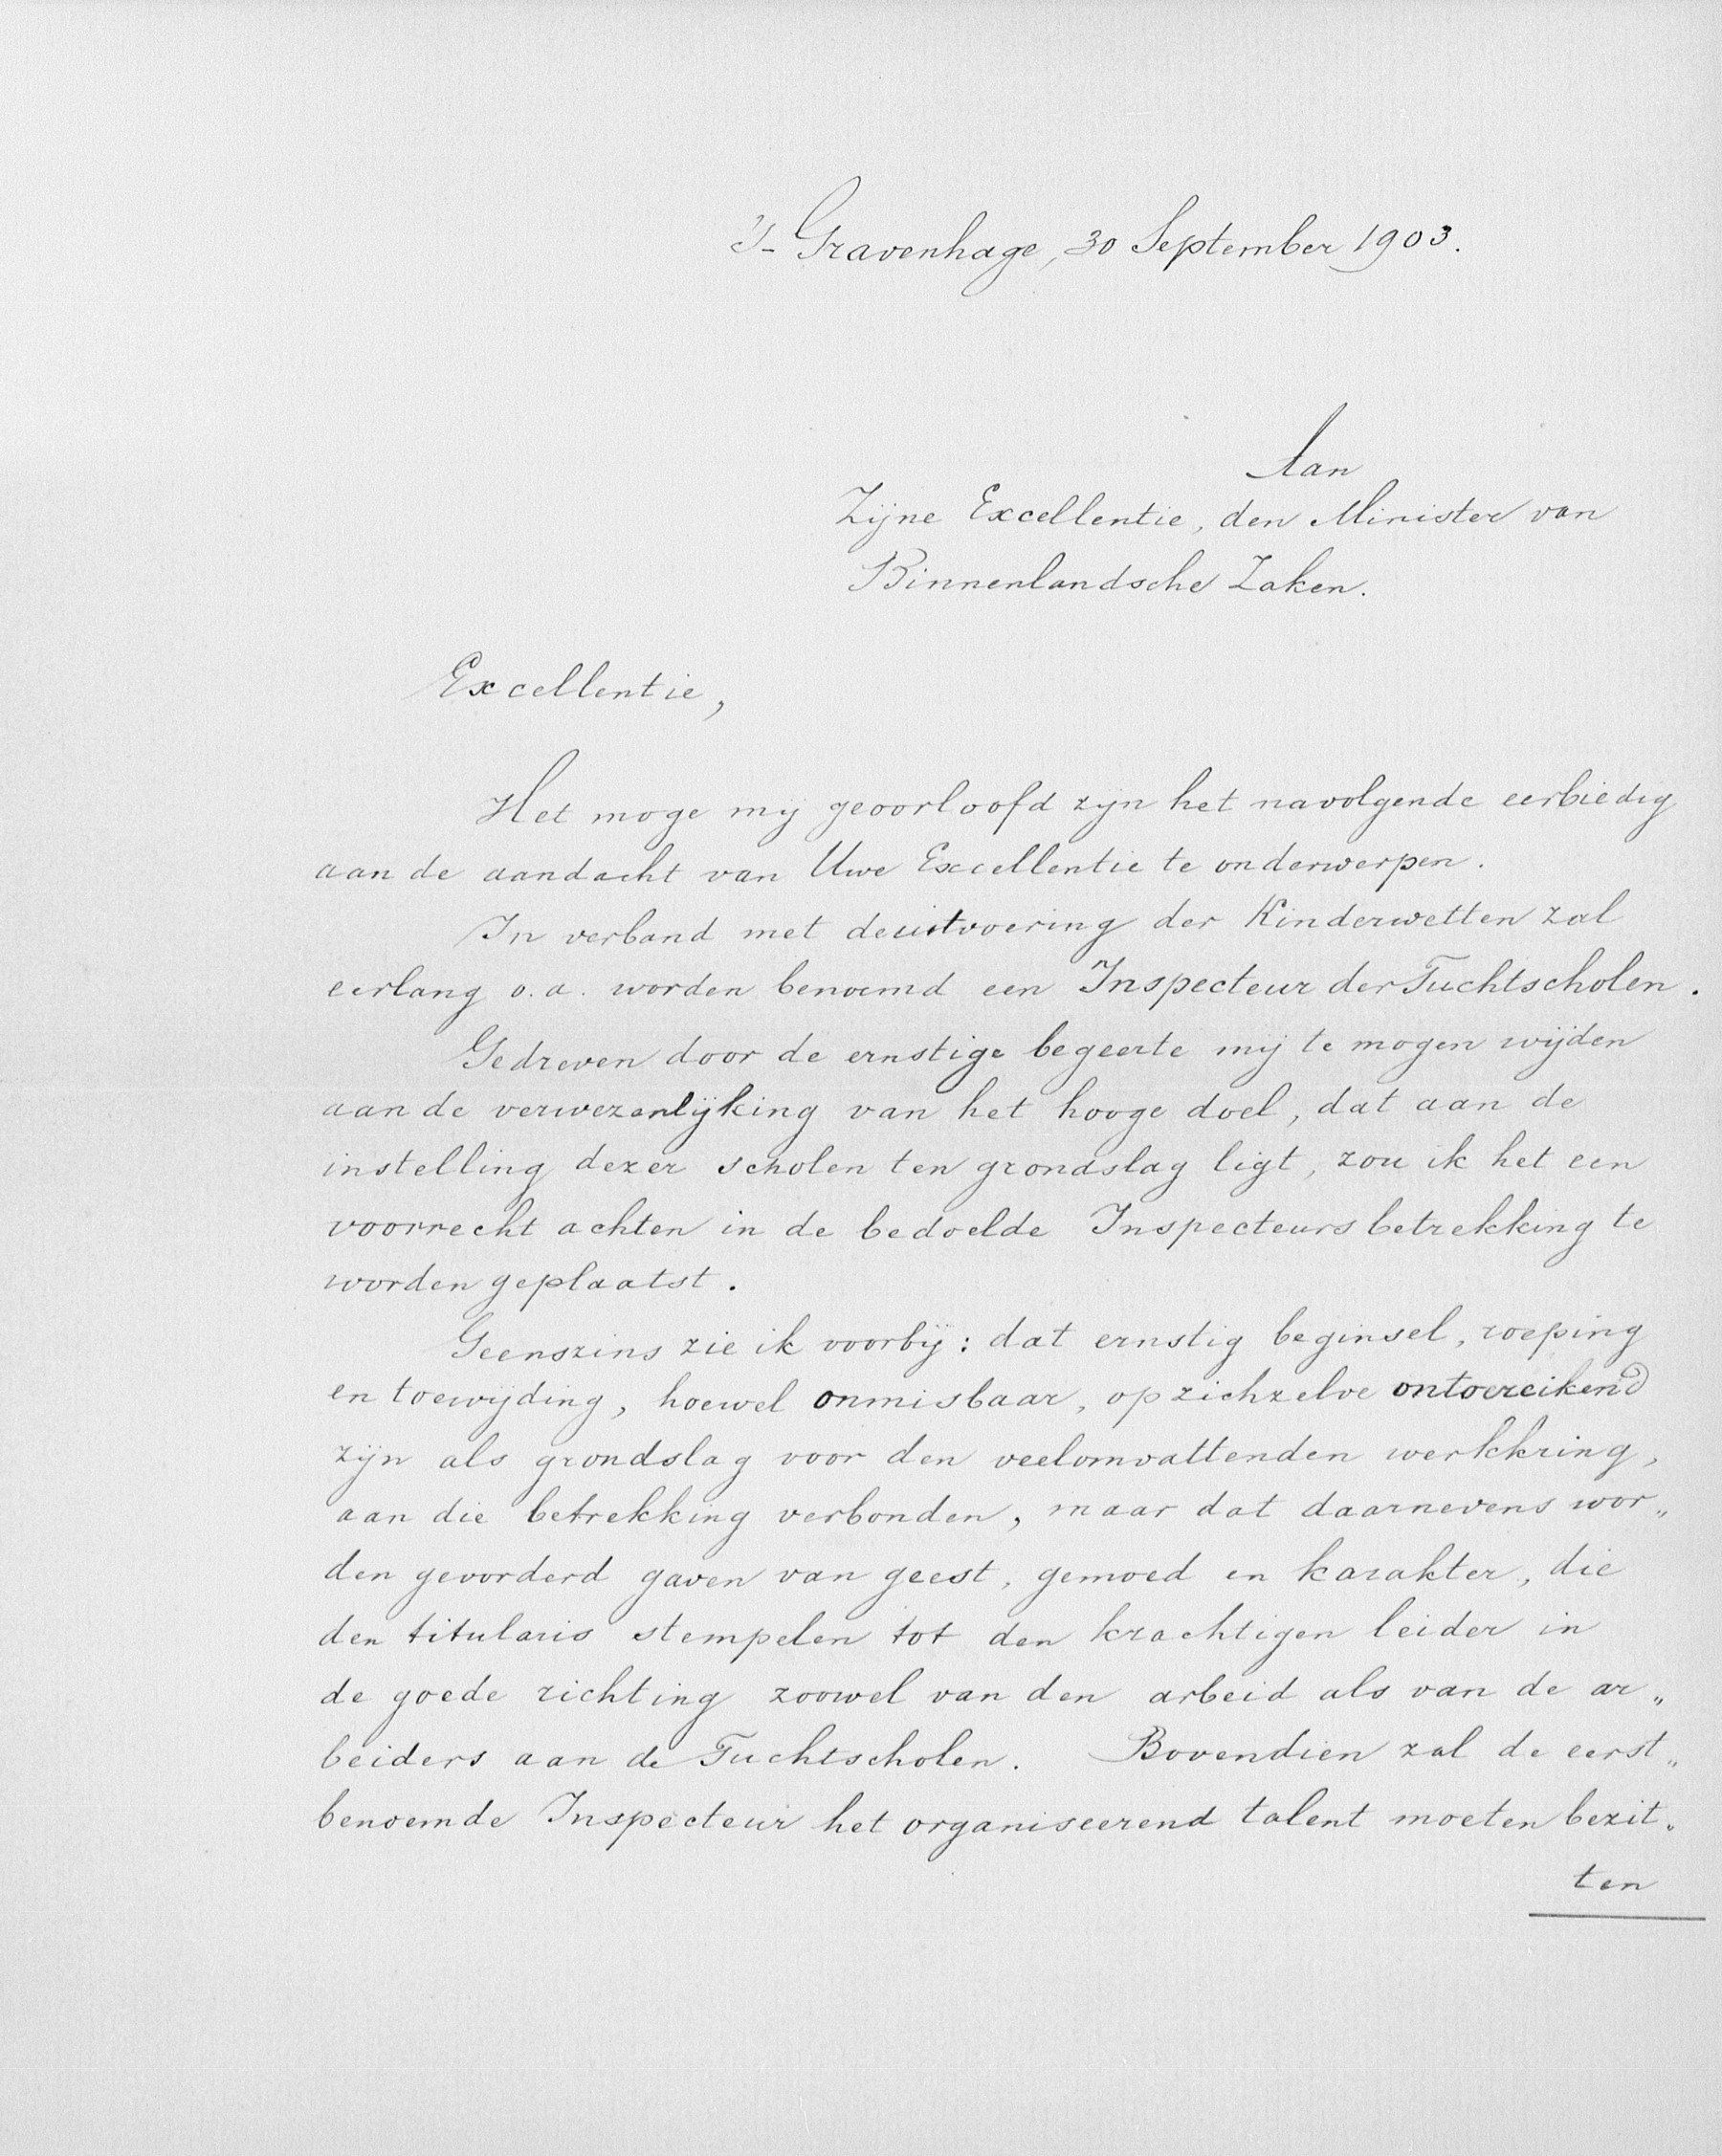 's-Gravenhage, 30 September 1903.
Aan
Zijne Excellentie, den Minister van
Binnenlandsche Zaken.
Excellentie,
Het moge mij geoorloofd zijn het navolgende eerbiedig
aan de aandacht van Uwe Excellentie te onderwerpen.
In verband met de uitvoering der Kinderwetten zal
eerlang o.a. worden benoemd een Inspecteur der Tuchtscholen.
Gedreven door de ernstige begeerte mij te mogen wijden
aan de verwezenlijking van het hooge doel, dat aan de
instelling dezer scholen ten grondslag ligt, zou ik het een
voorrecht achten in de bedoelde Inspecteursbetrekking te
worden geplaatst.
Geenszins zie ik voorbij: dat ernstig beginsel, roeping
en toewijding, hoewel onmisbaar, op zichzelve ontoereikend
zijn als grondslag voor den veelomvattenden werkkring,
aan die betrekking verbonden, maar dat daarnevens wor„
den gevorderd gaven van geest, gemoed en karakter, die
den titularis stempelen tot den krachtigen leider in
de goede richting zoowel van den arbeid als van de ar„
beiders aan de Tuchtscholen. Bovendien zal de eerst„
benoemde Inspecteur het organiseerend talent moeten bezit„
ten